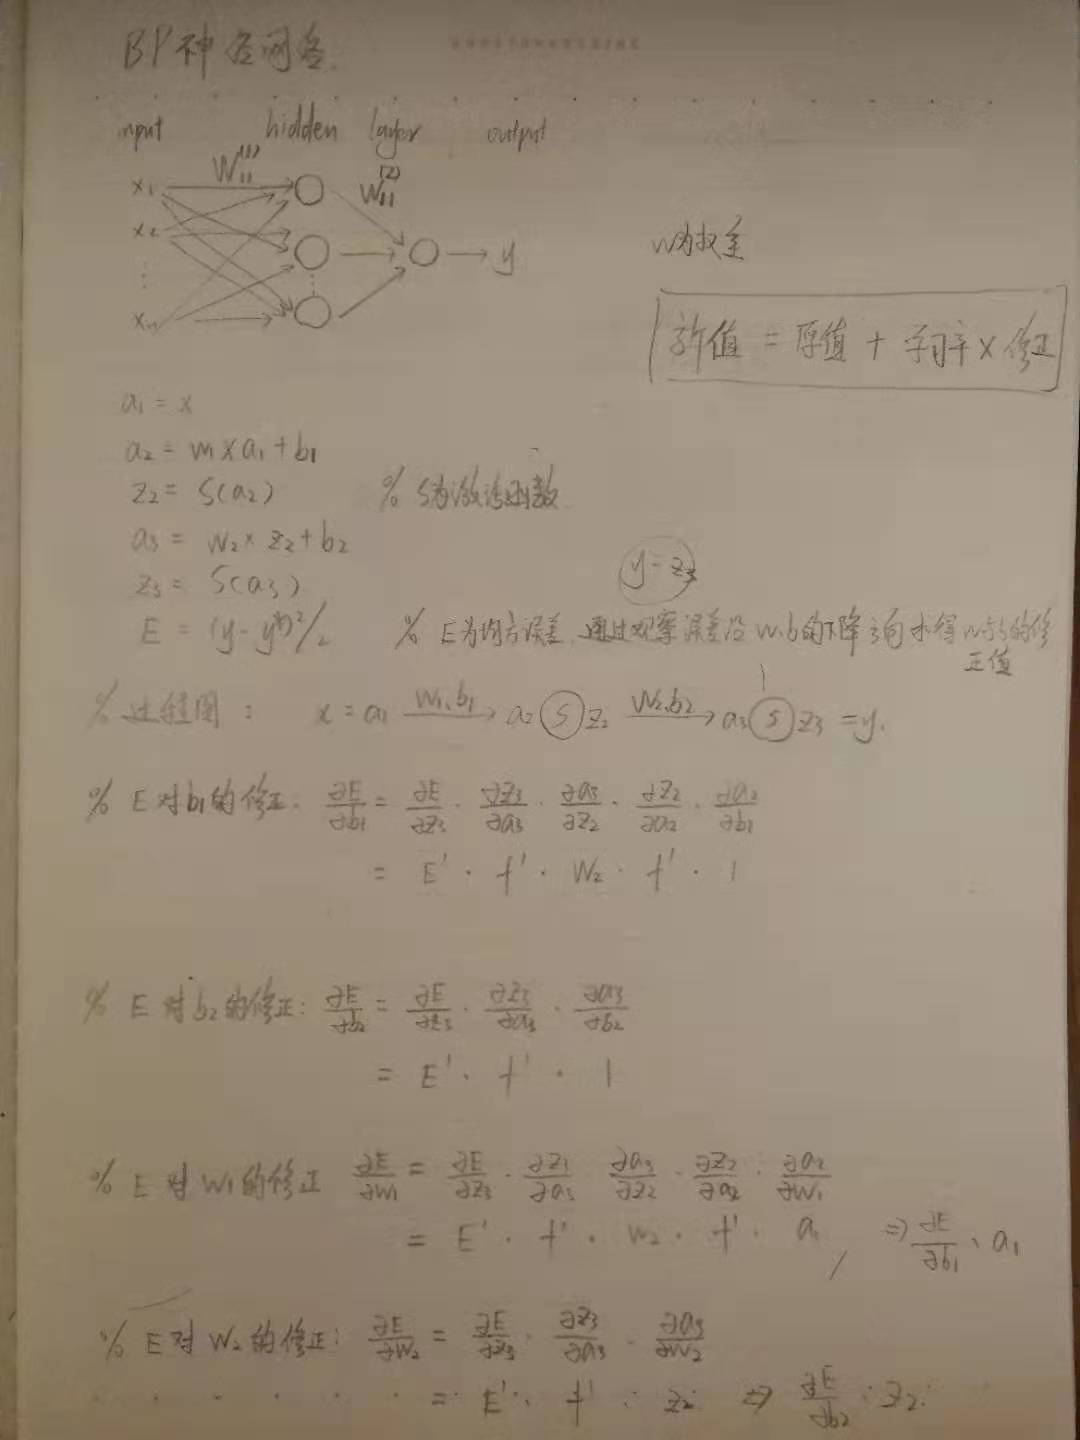 BP神经网络
input hidden layer output
W₁₁⁽¹⁾ W₁₁⁽²⁾
x₁
x₂
⋮
xₙ
y
w为权重
新值 = 原值 + 学习率 × 修正
a₁ = x
a₂ = w₁ × a₁ + b₁
z₂ = S(a₂) % S为激活函数
a₃ = w₂ × z₂ + b₂
z₃ = S(a₃)
y = z₃
E = (y - y)²/2 % E为均方误差,通过观察误差沿w、b的下降方向求得w与b的修
正值
% 过程图: x = a₁ —W₁、b₁→ a₂ Ⓢ z₂ —W₂、b₂→ a₃ Ⓢ z₃ = y.
% E对b₁的修正: ∂E/∂b₁ = ∂E/∂z₃ · ∂z₃/∂a₃ · ∂a₃/∂z₂ · ∂z₂/∂a₂ · ∂a₂/∂b₁
= E' · f' · W₂ · f' · 1
% E对b₂的修正: ∂E/∂b₂ = ∂E/∂z₃ · ∂z₃/∂a₃ · ∂a₃/∂b₂
= E' · f' · 1
% E对W₁的修正 ∂E/∂W₁ = ∂E/∂z₃ · ∂z₃/∂a₃ · ∂a₃/∂z₂ · ∂z₂/∂a₂ · ∂a₂/∂W₁
= E' · f' · w₂ · f' · a₁ ⇒ ∂E/∂b₁ · a₁
% E对W₂的修正: ∂E/∂W₂ = ∂E/∂z₃ · ∂z₃/∂a₃ · ∂a₃/∂W₂
= E' · f' · z₂ ⇒ ∂E/∂b₂ · z₂